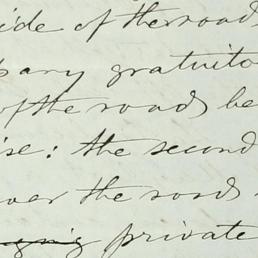 side of the roads
any gratuito
of the roads be
ise: the second
over the roads
private